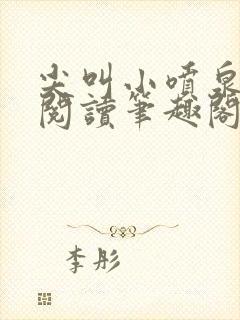 尖叫小噴泉
閱讀筆趣閣
李彤